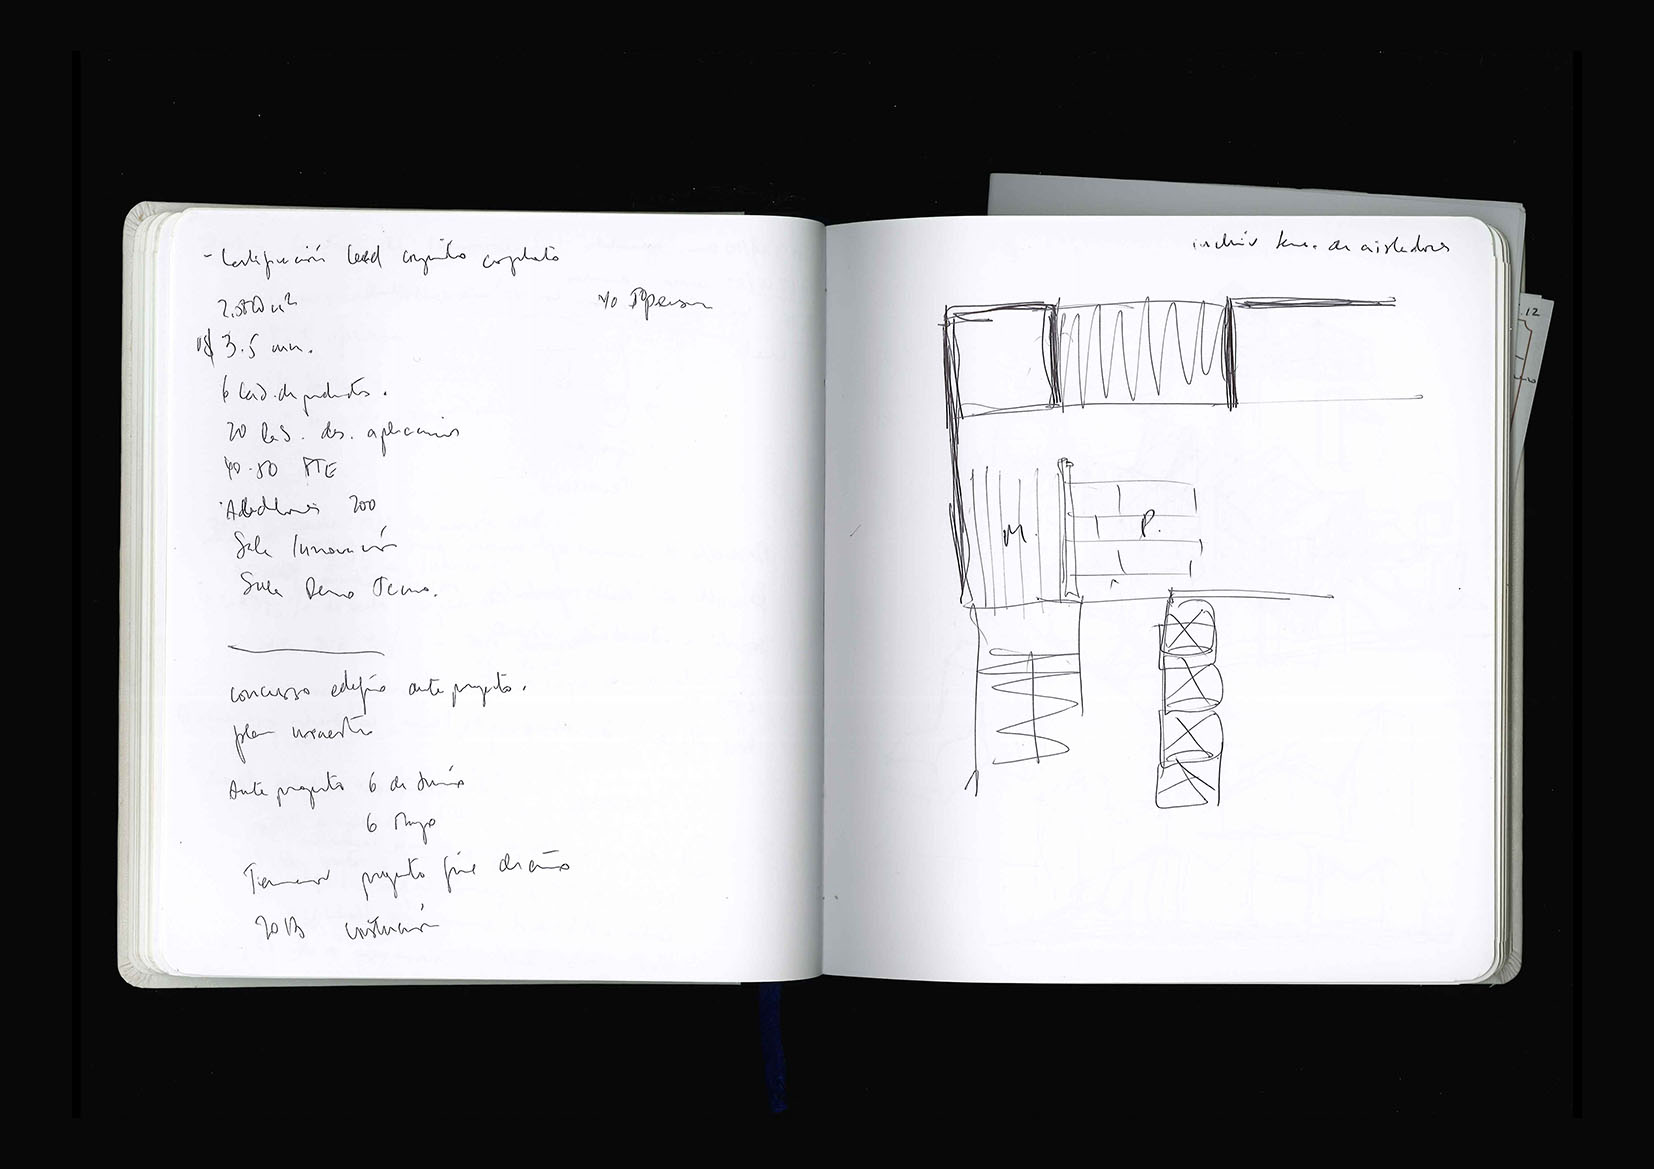 - Certificación Leed conjunto completo
2.500 m²
40 personas
U$ 3.5 mm.
6 Lab. de productos.
20 Lab. des. aplicaciones
40-50
200
Sala Innovación
Sala Demo Tecno.
concurso edificio anteproyecto.
plan maestro
Ante proyecto 6 de Junio
6 Mayo
Terminar proyecto fin de año
2013 construcción
incluir de aisladores
M.
P.
.12